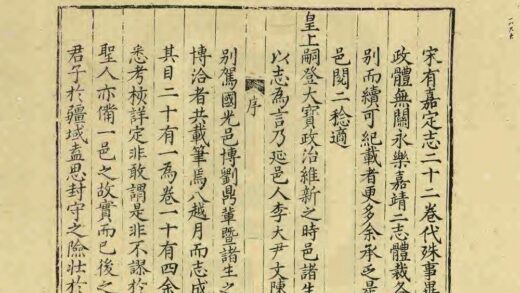 宋有嘉定志二十二卷代殊事異
政體無關永樂嘉靖二志體裁各
别而續可紀載者更多余承乏是
邑閱二稔適
皇上嗣登大寶政治維新之時邑諸生
以志為言乃延邑人李大尹文陳
序
别駕國光邑博劉鼎輩暨諸生之
博洽者共載筆焉八越月而志成
其目二十有一為卷一十有四余
悉考極詳定非敢謂是非不謬於
聖人亦備一邑之故實而已後之
君子於疆域盖思封守之險壯於